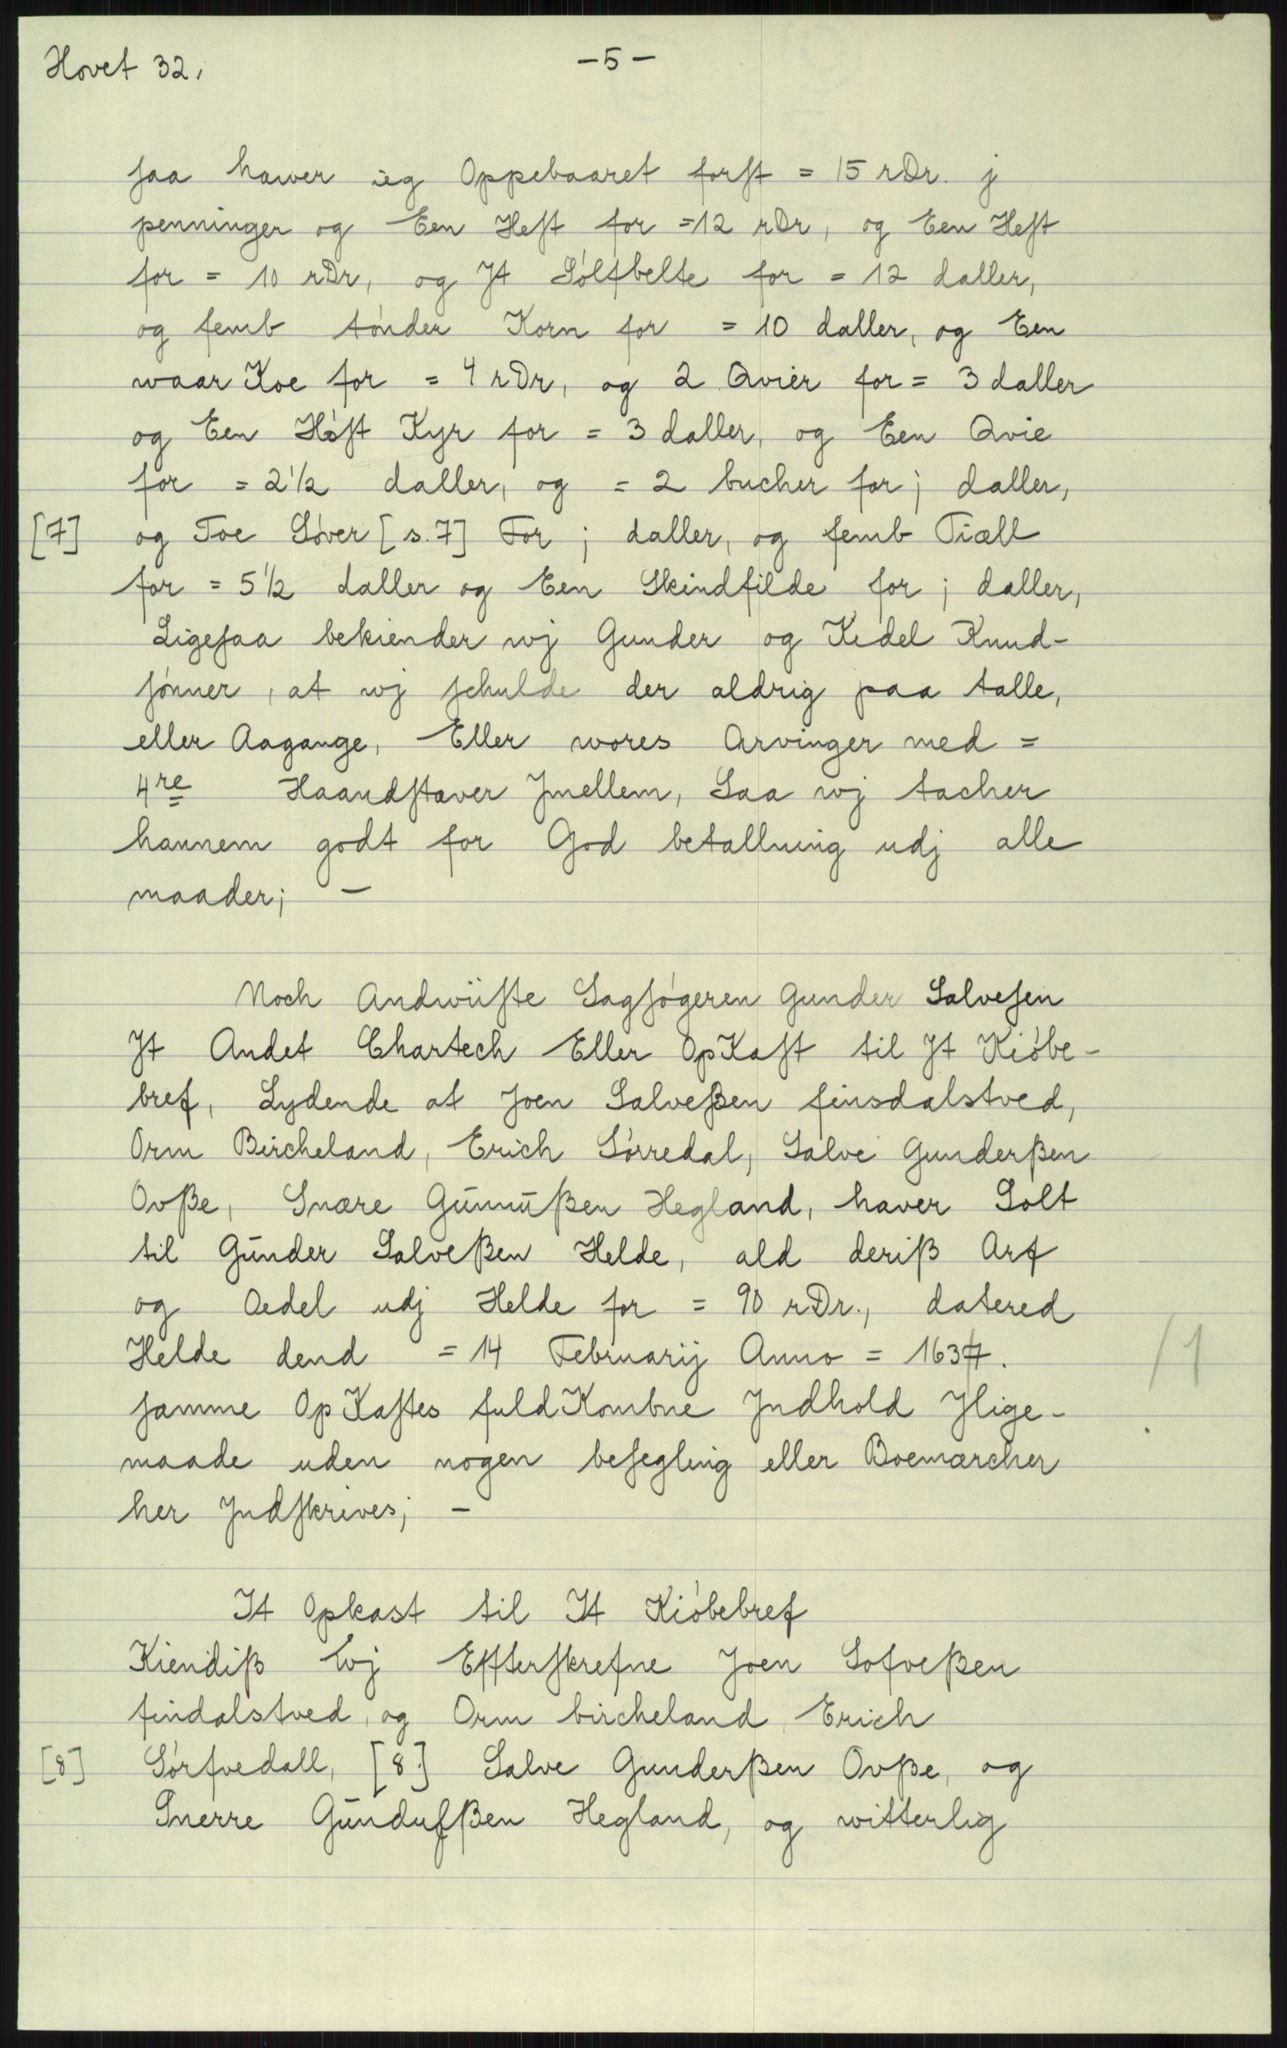 Hovet 32.
-5-
saa hawer ieg Oppebaaret forst = 15 rDr. j
penninger og Een Hest for =12 rDr, og Een Hest
for = 10 rDr, og Jt Sólfbelte for = 12 daller,
og femb tónder Korn for = 10 daller, og Een
waar Koe for = 4 rDr, og 2 Qvier for = 3 daller
og Een Hóst Kyr for = 3 daller, og Een Qvie
for = 2 1/2 daller, og = 2 bucher for j daller,
[7] og Toe Sóver [s. 7] For j daller, og femb Tiæll
for = 5 1/2 daller og Een Skindfilde for j daller,
Ligesaa bekiender wj Gunder og Kedel Knud-
sónner, at wj schulde der aldrig paa talle,
eller Aagange, Eller wores Arvinger med =
4re Haandstaver Jmellem, Saa wj tacher
hannem godt for God betallning udj alle
maader; -
Noch Andwiiste Sagsógeren Gunder Salvesen
Jt Andet Chartech Eller OpKast til Jt Kióbe-
bref, Lydende at Joen Salveßen finsdalstved,
Orm Bircheland, Erich Sórredal, Salve Gunderßen
Ovße, Snære Gūnnūßen Hegland, haver Solt
til Gūnder Salveßen Helde, ald deriß Arf
og Oedel udj Helde for = 90 rDr., datered
Helde dend = 14 Februarij Anno = 1637. /1
samme OpKastes fuldKombne Jndhold Jlige-
maade uden nogen besegling eller Boemærcher
her Jndskrives; -
It Opkast til It Kióbebref
Kiendiß Wj Effterskrefne Joen Sofveßen
findalstved, og Orm bircheland, Erich
[8] Sórfvedall, [8] Salve Gunderßen Ovße, og
Snerre Gūndufßen Hegland, og witterlig